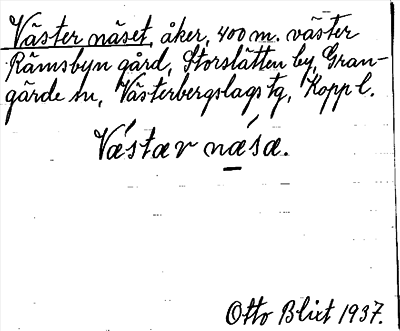 Väster näset, åker, 400 m. väster
Rämsbyn gård, Storslätten by, Gran-
gärde sn, Västerbergslags tg, Kopp l.
Væ´stær næ´sæ.
Otto Blixt 1937.